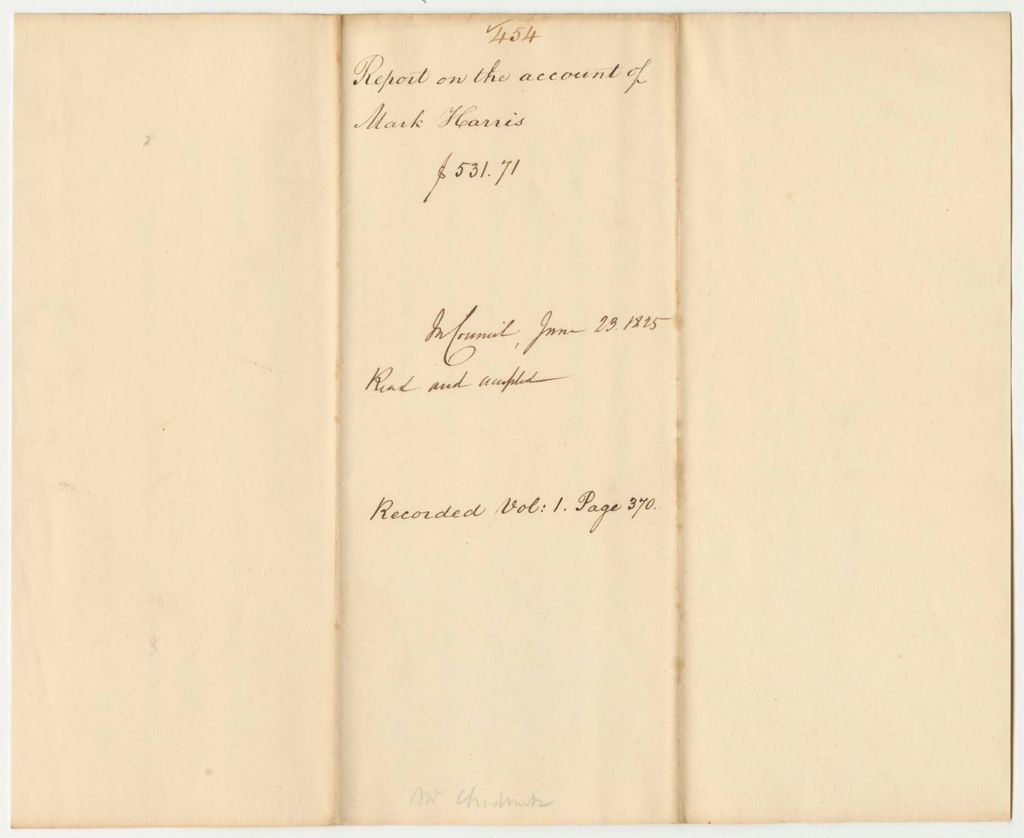 454
Report on the account of
Mark Harris
$531.71
In Council, June 23. 1825
Read and accepted
Recorded Vol: 1. Page 370.
Mr